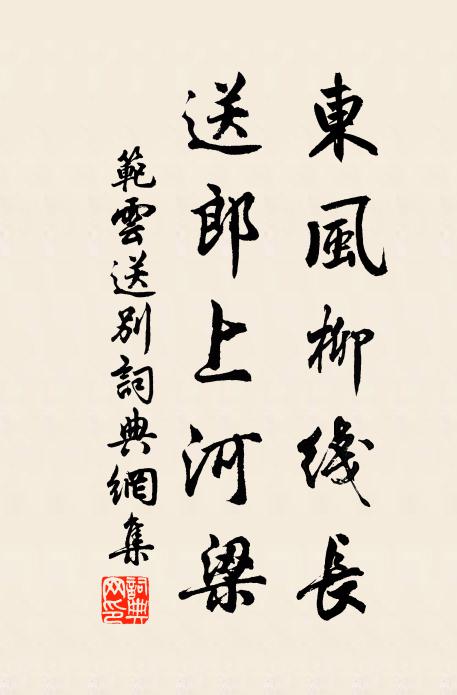 東風柳线長
送郎上河梁
範雲送別詞典網集
詞典網印